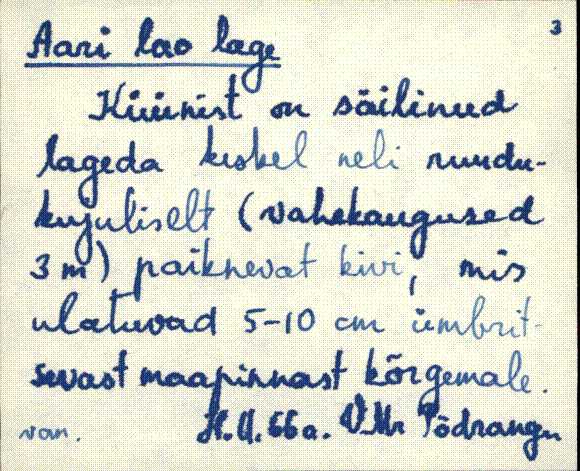 3
Aari lao lage
Küünist on säilinud
lageda keskel neli ruudu-
kujuliselt (vahekaugused
3 m) paiknevat kivi, mis
ulatuvad 5-10 cm ümbrit-
sevast maapinnast kõrgemale.
van. H.U. 66a. V.Mr Põdrangu